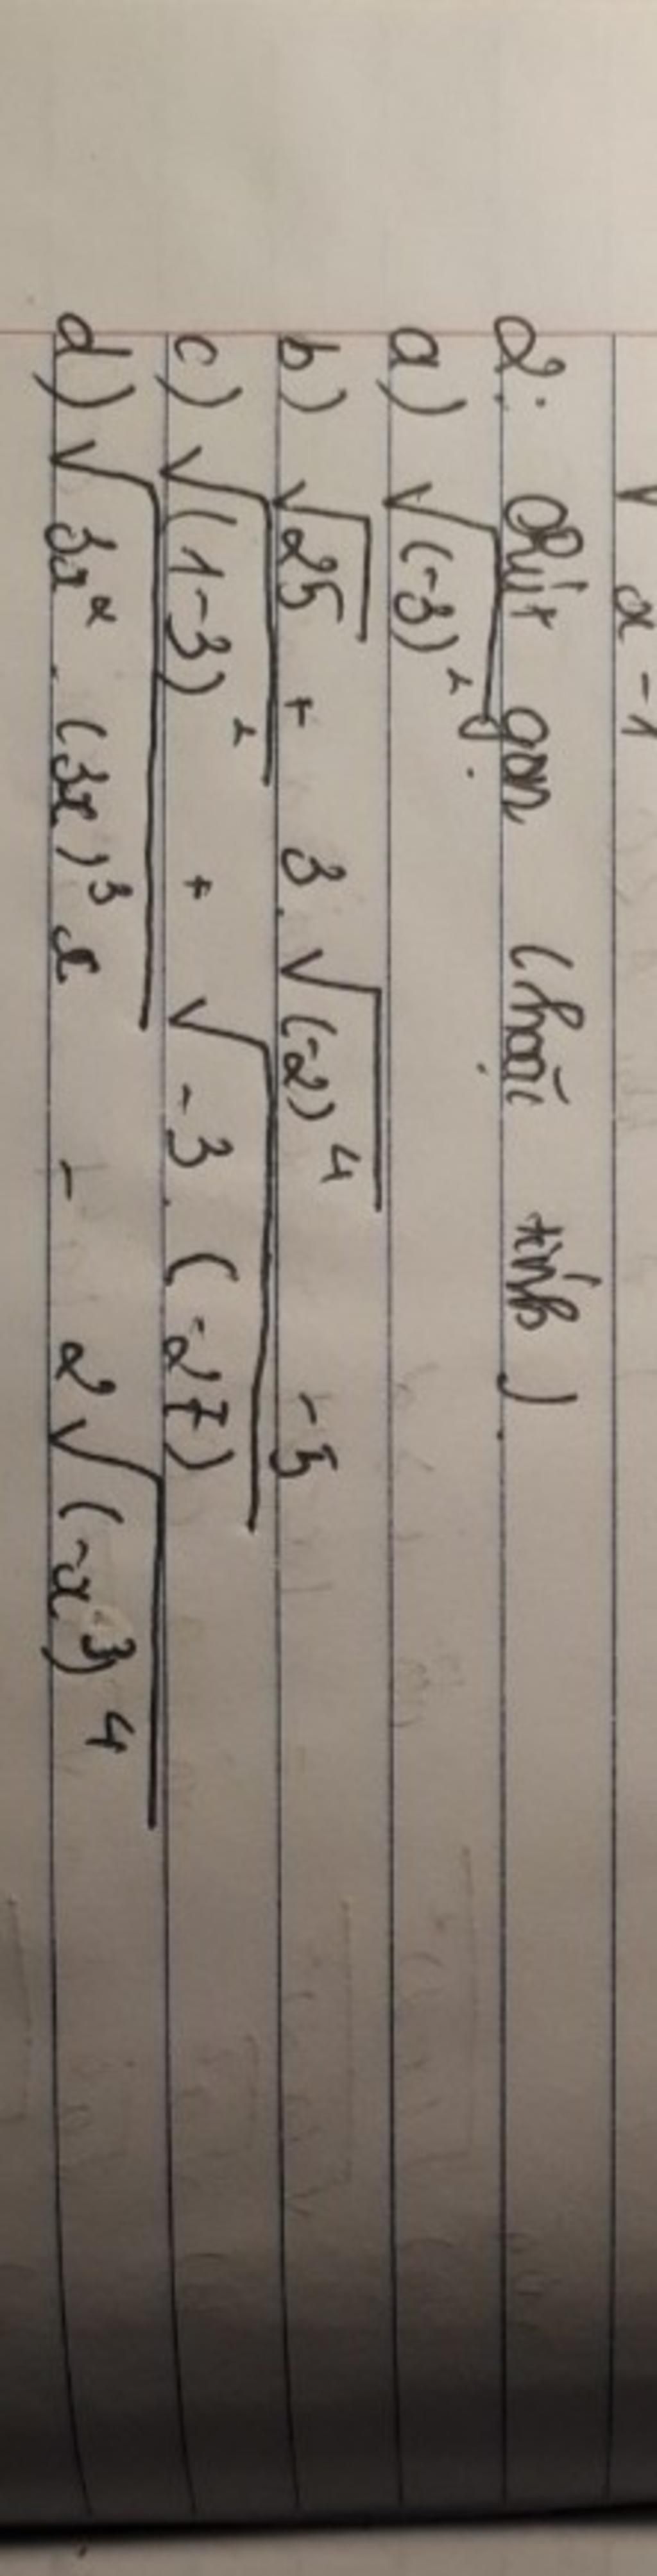 x-1
2: Rút gọn (hoặc tính).
a) √(-3)²
b) √25 + 3.√(-2)⁴ - 5
c) √(1-3)² + √-3.(-27)
d) √3x².(3x)³x - 2√(-x³)⁴